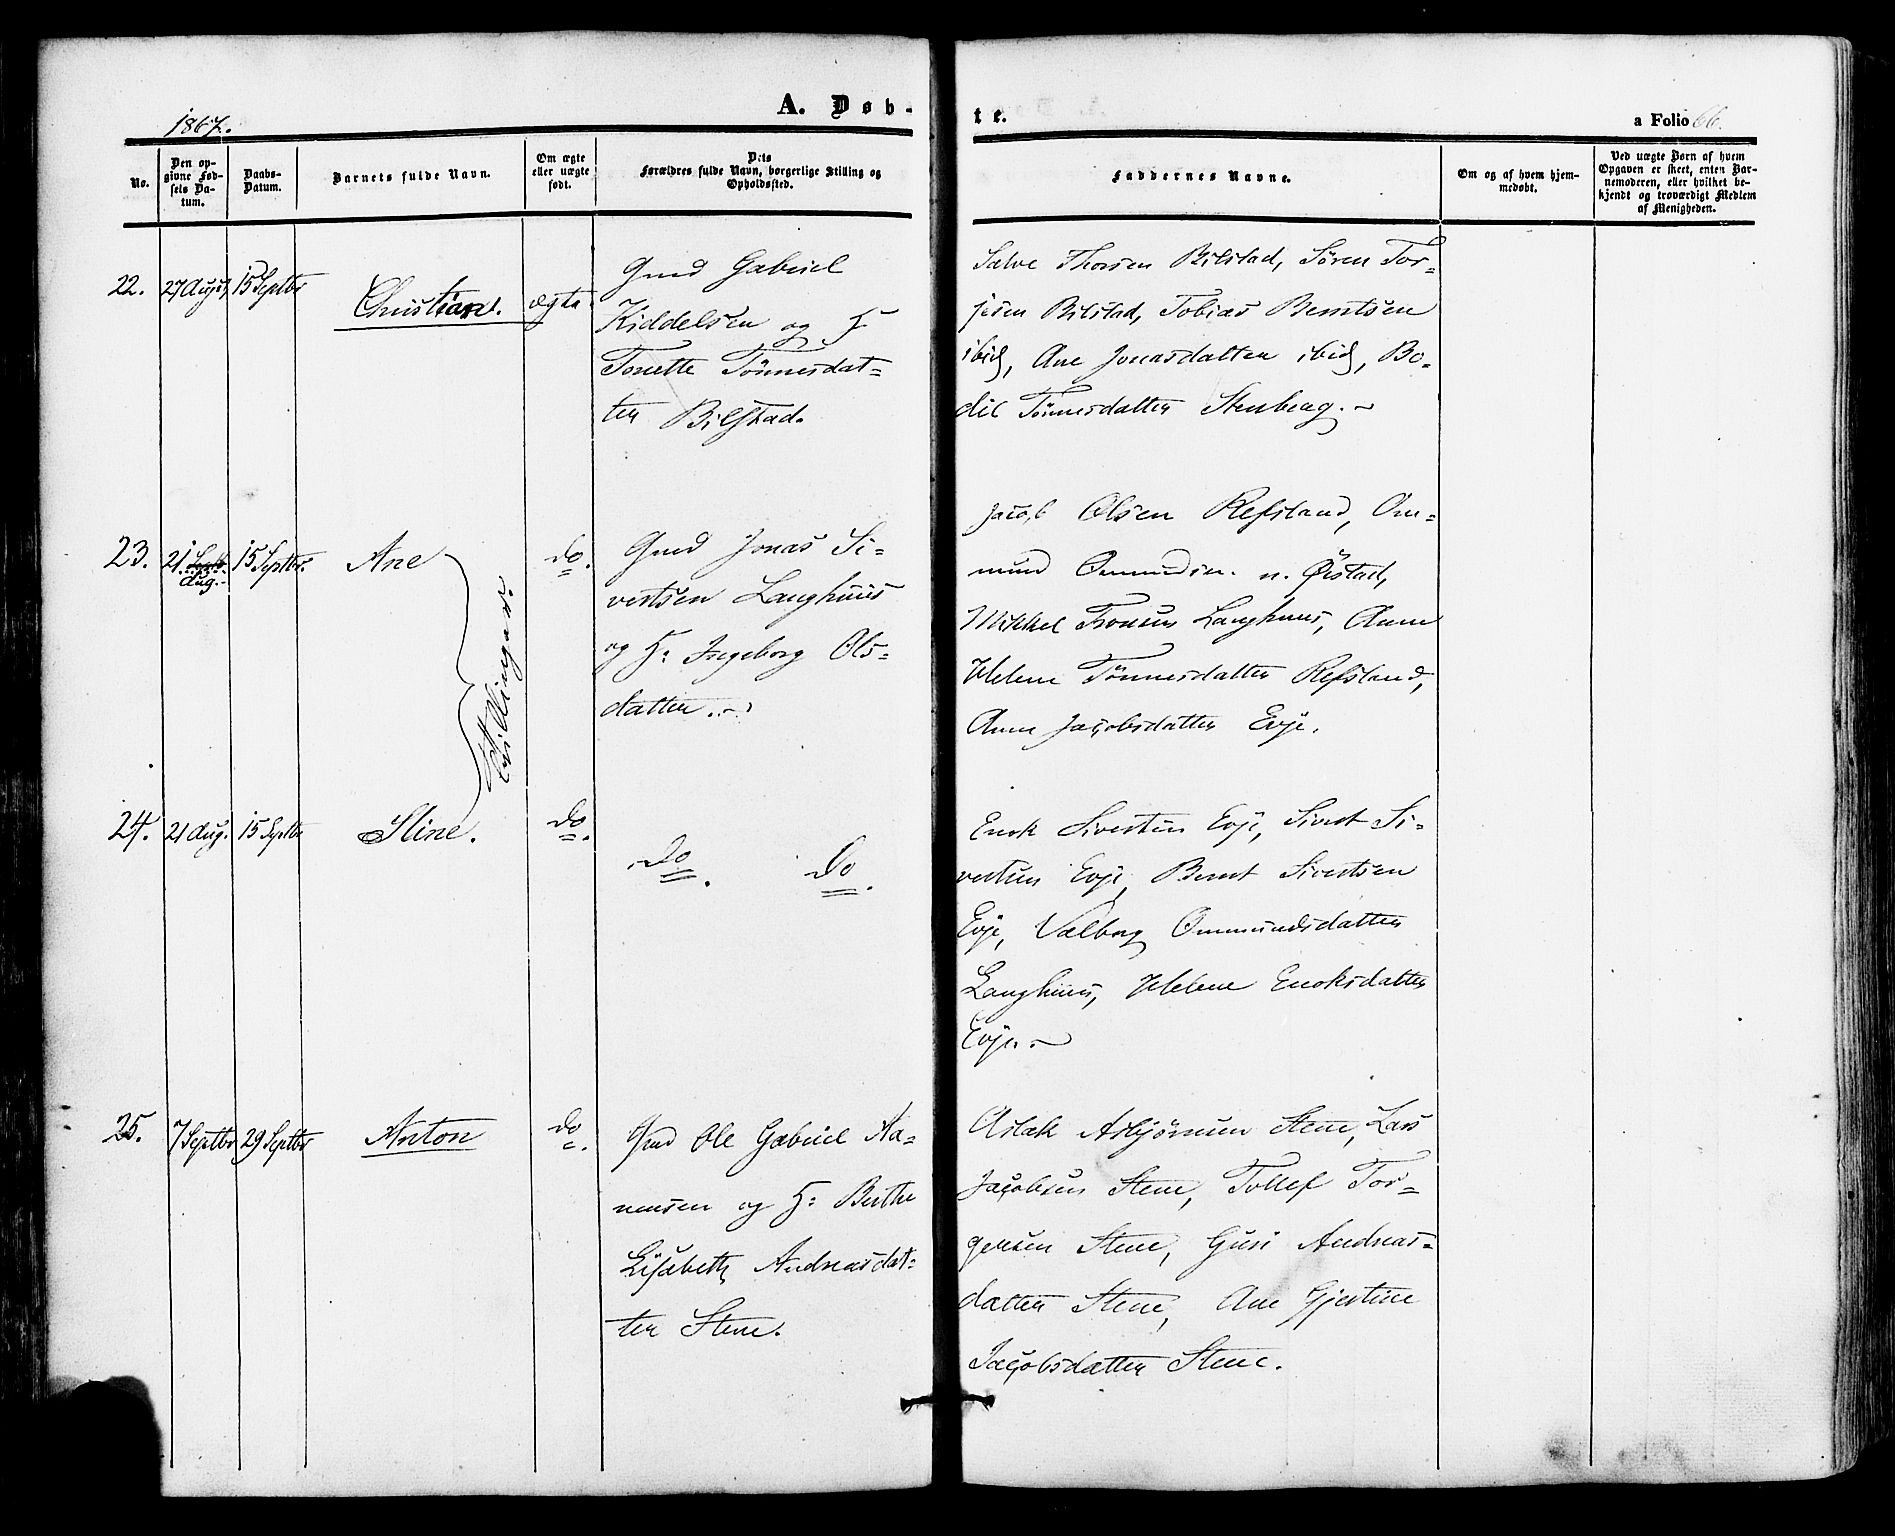 1867.
A. Døb-
te.
a Folio 66.
No.
Den op-
givne Fød-
sels Da-
tum.
Daabs-
Datum.
Barnets fulde Navn.
Om ægte
eller uægte
født.
Dets
Forældres fulde Navn, borgerlige Stilling og
Opholdssted.
Faddernes Navne.
Om og af hvem hjem-
medøbt.
Ved uægte Børn af hvem
Opgaven er skeet, enten Bar-
nemoderen, eller hvilket be-
kjendt og troværdigt Medlem
af Menigheden.
22.
27 August
15 Septbr
Christian.
ægte
Gmd Gabriel
Kiddelsen og H
Tonette Tönnesdat-
ter Bilstad.
Salve Thorsen Bilstad, Sören Tor-
jesen Bilstad, Tobias Berntsen
ibid, Ane Jonasdatter ibid, Bo-
dil Tönnesdatter Stenberg.
23.
21 Septb
Aug.
15 Septbr.
Ane
Tvillinger.
do.
Gmd Jonas Si-
vertsen Langhuus
og H: Ingeborg Ols-
datter.
Jacob Olsen Refsland, Om-
mund Ommundsn. n. Örstad,
Mikkel Tronsen Langhuus, Anne
Helene Tönnesdatter Refsland,
Anne Jacobsdatter Evje.
24.
21 Aug.
15 Septbr
Stine.
do.
do. do.
Enok Sivertsen Evje, Sivert Si-
vertsen Evje, Bernt Sivertsen
Evje, Valborg Ommundsdatter
Langhuus, Helene Enoksdatter
Evje.
25.
7 Septbr
29 Septbr
Anton
do.
Gmd Ole Gabriel Aa-
nensen og H: Berthe
Lisabeth Andreasdat-
ter Stene.
Aslak Asbjörnsen Stene, Lars
Jacobsen Stene, Tollef Tor-
gersen Stene, Guri Andreas-
datter Stene, Ane Gjertine
Jacobsdatter Stene.